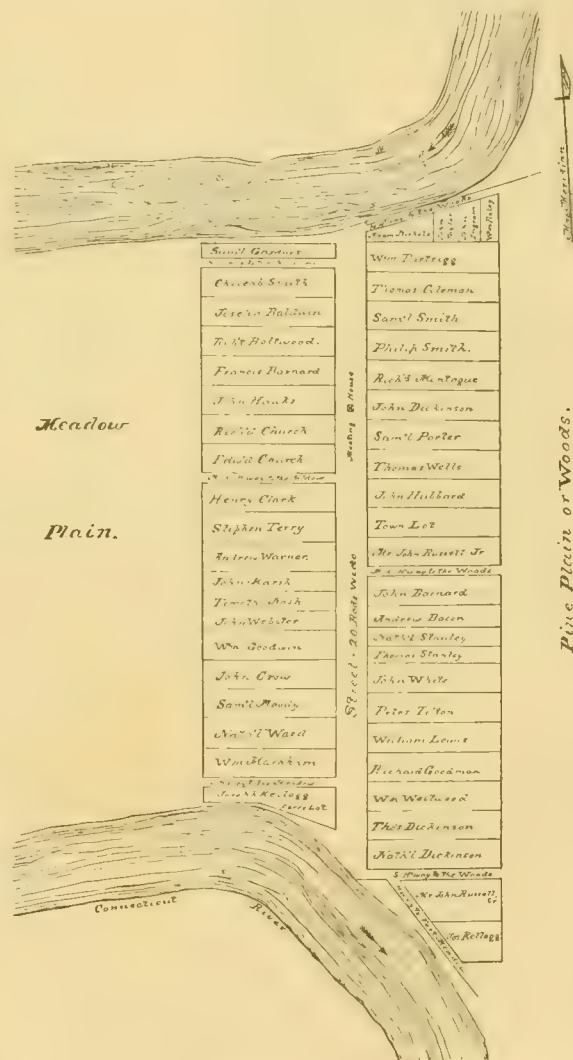 Mag. Meridian
Sam'l Gardner
Chileab Smith
Joseph Baldwin
Rob't Boltwood.
Francis Barnard
John Hawks
Rich'd Church
Edw'd Church
Henry Clark
Stephen Terry
Andrew Warner
John Marsh
Timoth. Nash
John Webster
Wm Goodwin
John Crow
Sam'l Moody
Nath'l Ward
Wm Markham
Joseph Kellogg
Ferry Lot
Meadow
Plain.
Meeting House
Street - 20 Rods Wide
to the Woods
John Taylor
John Ingram
Wm Pixley
Wm Partrigg
Thomas Coleman
Sam'l Smith
Philip Smith.
Rich'd Montague
John Dickinson
Sam'l Porter
Thomas Wells
John Hubbard
Town Lot
Mr John Russell Jr
H'way to the Woods
John Barnard
Andrew Bacon
Nath'l Stanley
Thomas Stanley
John White
Peter Tilton
William Lewis
Richard Goodman
Wm Westwood
Tho's Dickinson
Nath'l Dickinson
S. H'way to the Woods
Mr John Russell
Sr
Jos Kellogg
Pine Plain or Woods.
Connecticut
River